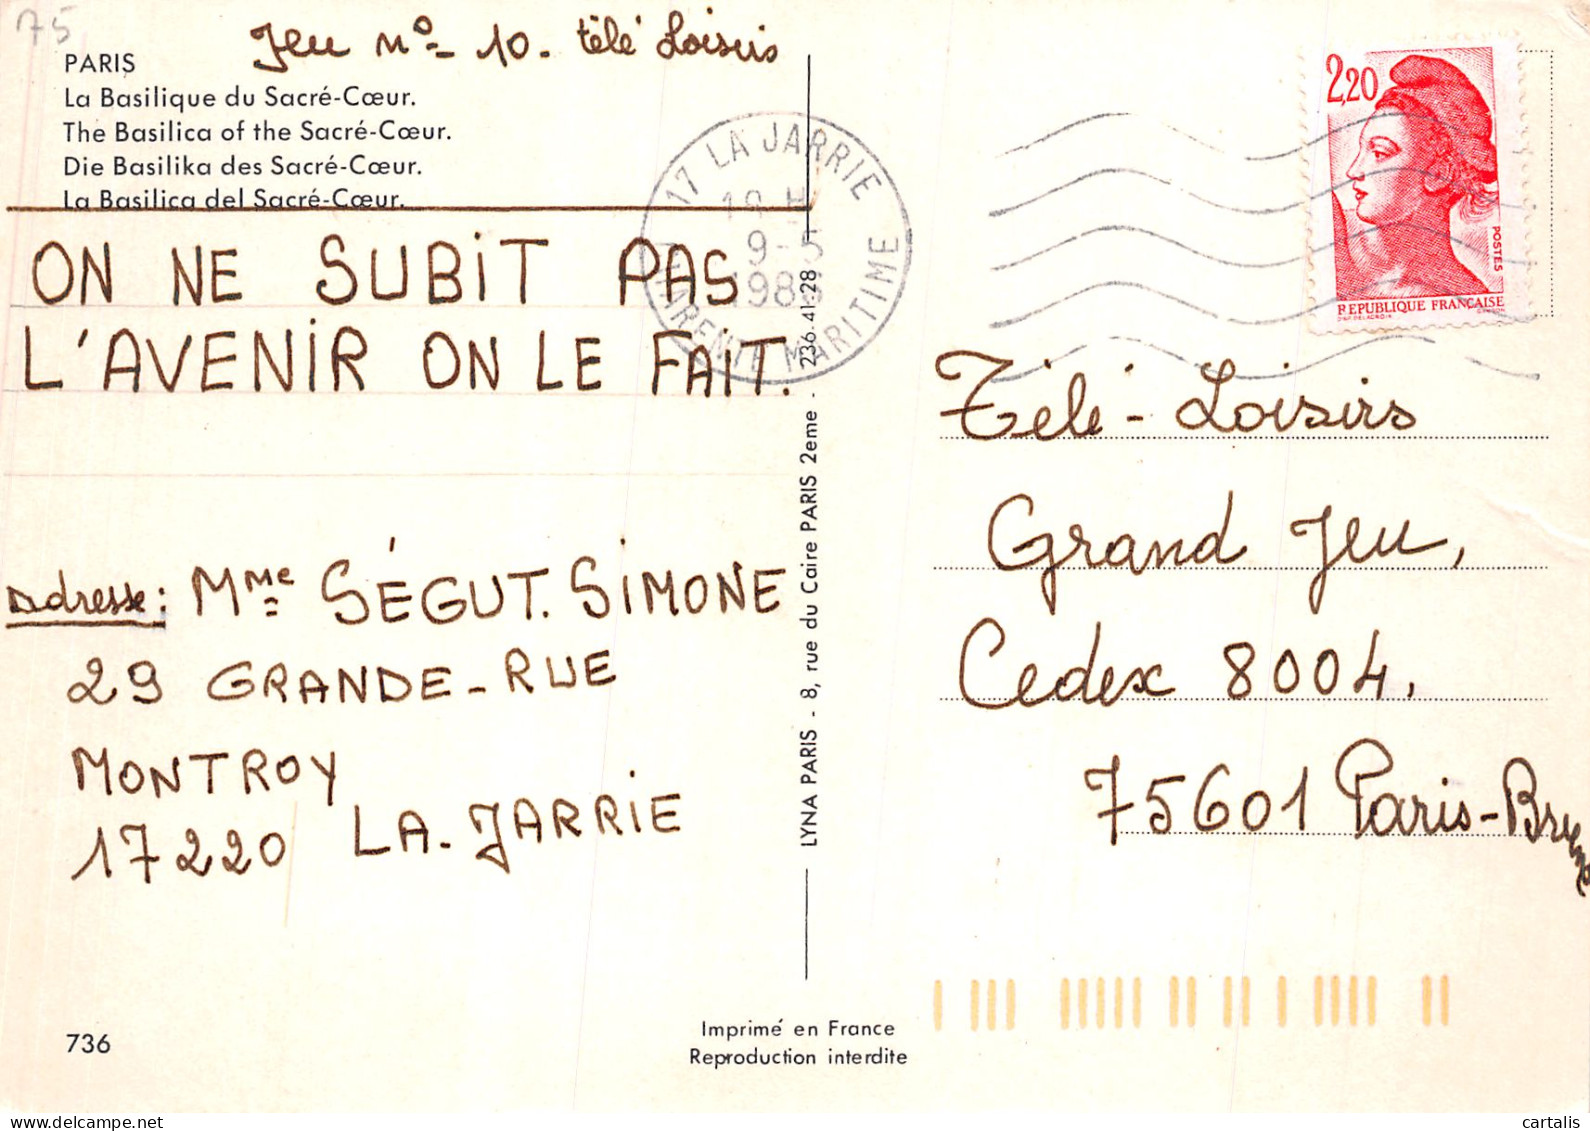 75
Jeu n° 10. télé Loisirs
PARIS
La Basilique du Sacré-Cœur.
The Basilica of the Sacré-Cœur.
Die Basilika des Sacré-Cœur.
La Basilica del Sacré-Cœur.
ON NE SUBIT PAS
L'AVENIR ON LE FAIT.
adresse: Mme SÉGUT. SIMONE
29 GRANDE-RUE
MONTROY
17220 LA-JARRIE
736
Imprimé en France
Reproduction interdite
LYNA PARIS - 8, rue du Caire PARIS 2eme - 236-41-28
17 LA JARRIE
9-5
CHARENTE MARITIME
2,20
POSTES
REPUBLIQUE FRANÇAISE
Télé-Loisirs
Grand Jeu,
Cedex 8004.
75601 Paris-Brune
cartalis